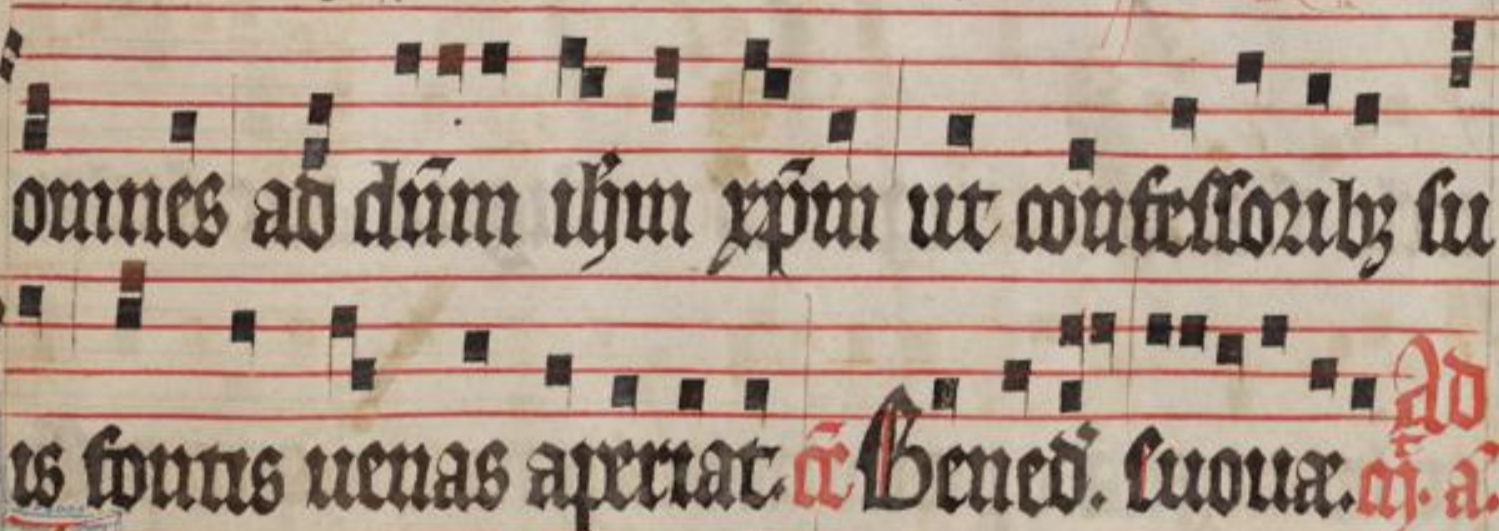 omnes ad dūm ihm xp̄m ut confessoribꝫ su
is fontis uenas aperiat. Bened. euouae. Ad